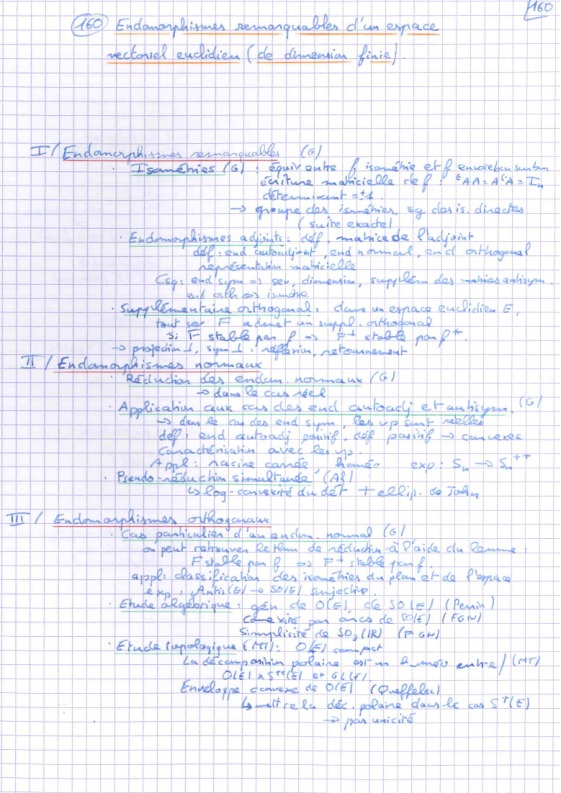 160
(160) Endomorphismes remarquables d'un espace
vectoriel euclidien (de dimension finie).
I / Endomorphismes remarquables (G)
· Isométries (G) : équiv entre f isométrie et f envoie bon sur bon
écriture matricielle de f : ᵗAA = AᵗA = Iₙ
déterminant = ±1
→ groupe des isométries, sg des is. directes
(suite exacte)
· Endomorphismes adjoints : déf, matrice de l'adjoint
déf : end autoadjoint, end normal, end orthogonal
représentation matricielle
Csq : end sym => sev, dimension, supplém des matrices antisym.
end orth <=> isométrie
· Supplémentaire orthogonal : dans un espace euclidien E,
tout sev F admet un suppl. orthogonal
Si F stable par f => F⊥ stable par f*.
→ projection ⊥, sym ⊥ : réflexion, retournement
II / Endomorphismes normaux
· Réduction des endom. normaux (G)
→ dans le cas réel
· Application aux cas des end autoadj et antisym. (G)
→ dans le cas des end sym, les vp sont réelles
déf : end autoadj positif, déf positif → convexes
Caractérisation avec les vp.
Appl : racine carrée, homéo exp : Sₙ → Sₙ⁺⁺
· Pseudo-réduction simultanée (Al)
↳ log-convexité du dét + ellip. de John
III / Endomorphismes orthogonaux
· Cas particulier d'un endom. normal (G)
on peut retrouver le thm de réduction à l'aide du lemme :
F stable par f => F⊥ stable par f.
appl : classification des isométries du plan et de l'espace
exp : Antis(E) → SO(E) surjective.
· Etude algébrique : gén de O(E), de SO(E) (Perrin)
Connexité par arcs de SO(E) (FGN)
Simplicité de SO₃(IR) (FGN)
· Etude topologique (MT) : O(E) compact
La décomposition polaire est un homéo entre (MT)
O(E) × S⁺⁺(E) et GL(E).
Enveloppe convexe de O(E) (Queffelec)
↳ mettre la déc. polaire dans le cas S⁺(E)
→ pas unicité